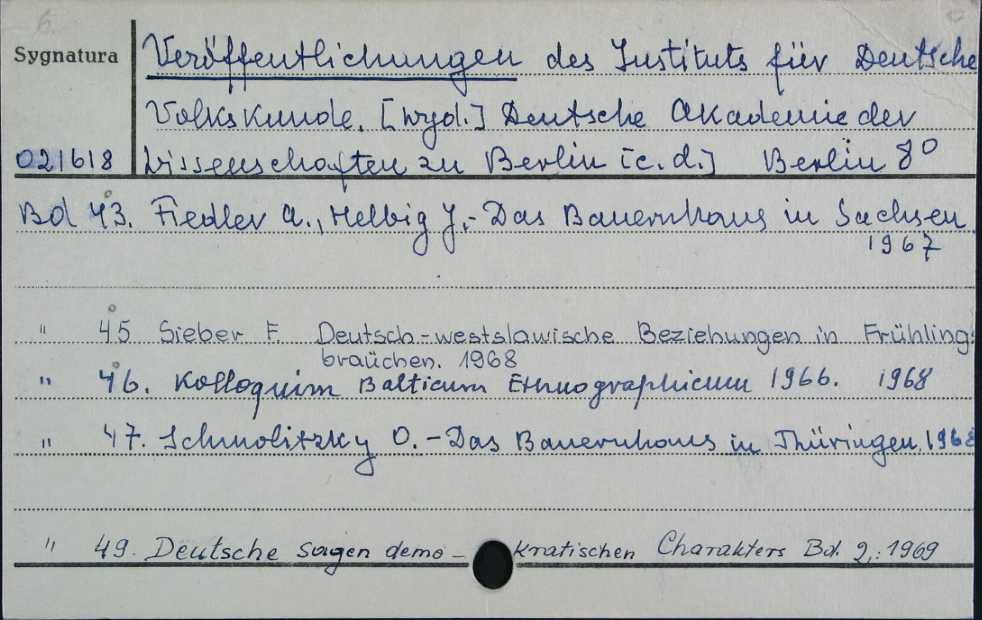 Sygnatura Veröffentlichungen des Instituts für Deutsche
Volkskunde. [wyd.] Deutsche Akademie der
021618 Wissenschaften zu Berlin [c.d.] Berlin 8°
Bd 43. Fiedler A., Helbig J.- Das Bauernhaus in Sachsen.
1967
" 45 Sieber F. Deutsch-westslawische Beziehungen in Frühlings
braüchen. 1968
" 46. Kolloquim Balticum Ethnographicum 1966. 1968
" 47. Schmolitzky O. - Das Bauernhaus in Thüringen. 1968
" 49. Deutsche Sagen demo- kratischen Charakters Bd. 2,: 1969